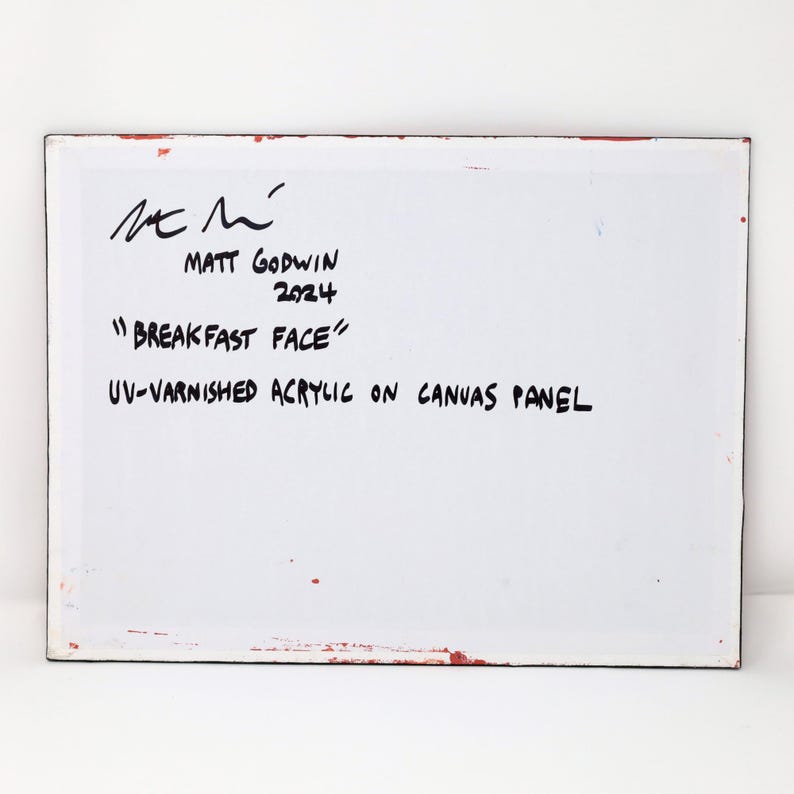 MATT GODWIN
2024
"BREAKFAST FACE"
UV-VARNISHED ACRYLIC ON CANVAS PANEL